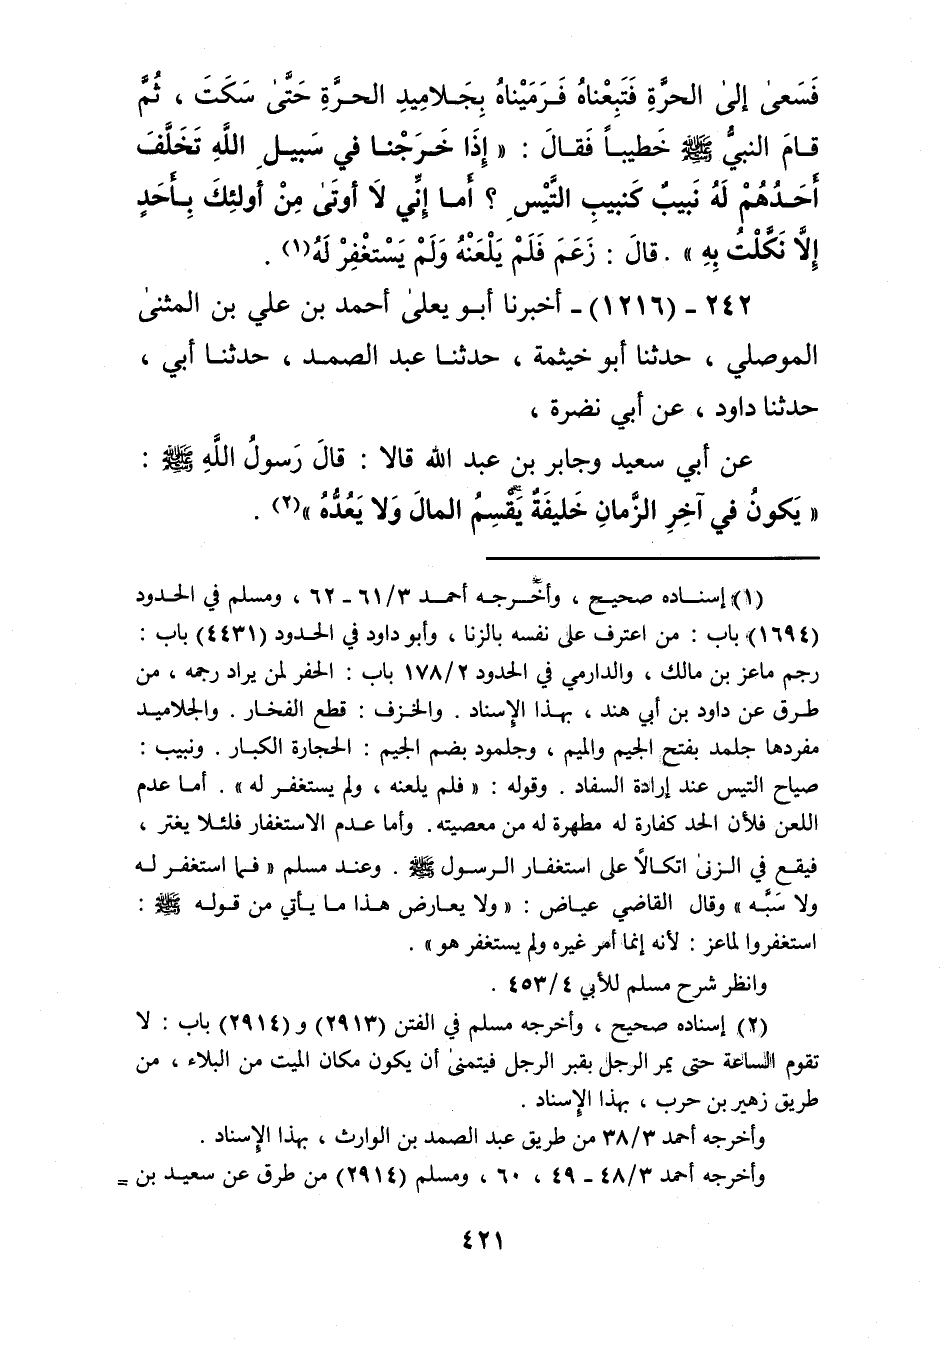 فَسَعىٰ إلىٰ الحرَّةِ فَتَبِعْناهُ فَـرَمَيْناهُ بِجَـلامِيدِ الحـرَّةِ حَتَّىٰ سَكَتَ ، ثُمَّ
قـامَ النبيُّ ﷺ خَطيبـاً فَقـالَ : « إِذَا خَـرَجْنـا في سَبيـلِ اللَّهِ تَخَلَّفَ
أَحَـدُهُمْ لَهُ نَبيبٌ كَنبيبِ التَّيْسِ ؟ أَمـا إنِّي لَا أوتَىٰ مِنْ أولئِكَ بِـأَحَدٍ
إِلَّا نَكَّلْتُ بِهِ » . قالَ : زَعَمَ فَلَمْ يَلْعَنْهُ وَلَمْ يَسْتَغْفِرْ لَهُ(١) .
٢٤٢ ـ (١٢١٦) ـ أخبرنا أبـو يعلىٰ أحمد بن علي بن المثنىٰ
الموصلي ، حدثنا أبو خيثمة ، حدثنـا عبد الصمـد ، حدثنـا أبي ،
حدثنا داود ، عن أبي نضرة ،
عن أبي سعيد وجابر بن عبد الله قالا : قالَ رَسولُ اللَّهِ ﷺ :
« يَكونُ في آخِرِ الزَّمانِ خَليفَةٌ يَقْسِمُ المالَ وَلا يَعُدُّهُ »(٢) .
(١) إسنـاده صحيح ، وأخـرجـه أحمـد ٦١/٣ ـ ٦٢ ، ومسلم في الحـدود
(١٦٩٤) باب : من اعترف على نفسه بالزنا ، وأبو داود في الحدود (٤٤٣١) باب :
رجم ماعز بن مالك ، والدارمي في الحدود ١٧٨/٢ باب : الحفر لمن يراد رجمه ، من
طـرق عن داود بن أبي هند ، بهـذا الإسناد . والخـزف : قطع الفخـار . والجلاميـد
مفردها جلمد بفتح الجيم والميم ، وجلمود بضم الجيم : الحجارة الكبـار . ونبيب :
صياح التيس عند إرادة السفاد . وقوله : « فلم يلعنه ، ولم يستغفـر له » . أمـا عدم
اللعن فلأن الحد كفارة له مطهرة له من معصيته. وأما عـدم الاستغفار فلئـلا يغتر ،
فيقـع في الـزنىٰ اتكـالًا على استغفار الـرسـول ﷺ . وعنـد مسلم « فـما استغفـر لـه
ولا سَبَّـه » وقال القاضي عيـاض : « ولا يعـارض هـذا مـا يـأتي من قـولـه ﷺ :
استغفروا لماعز : لأنه إنما أمر غيره ولم يستغفر هو » .
وانظر شرح مسلم للأبي ٤٥٣/٤ .
(٢) إسناده صحيح ، وأخرجه مسلم في الفتن (٢٩١٣) و (٢٩١٤) باب : لا
تقوم الساعة حتى يمر الرجل بقبر الرجل فيتمنىٰ أن يكون مكان الميت من البلاء ، من
طريق زهير بن حرب ، بهذا الإسناد .
وأخرجه أحمد ٣٨/٣ من طريق عبد الصمد بن الوارث ، بهذا الإسناد .
وأخرجه أحمد ٤٨/٣ ـ ٤٩ ، ٦٠ ، ومسلم (٢٩١٤) من طرق عن سعيـد بن =
٤٢١